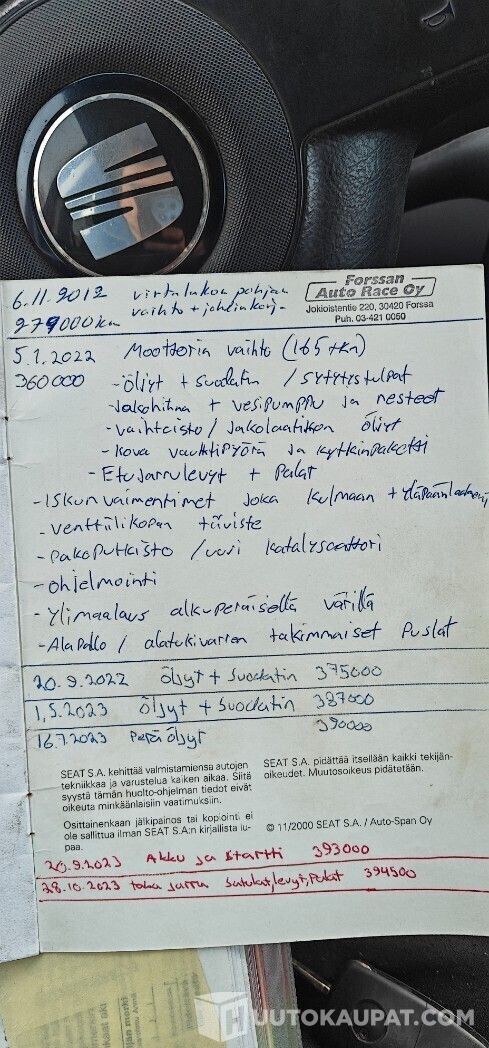 6.11.2012 virtalukon pohjan
279000km vaihto + johdinkorj.
Forssan
Auto Race Oy
Jokioistentie 220, 30420 Forssa
Puh. 03-421 0050
5.1.2022 Moottorin vaihto (165 tkm)
360000 -öljyt + suodatin / sytytystulpat
-Jakohihna + vesipumppu ja nesteet
-vaihteisto / Jakolaatikon öljyt
-Kova vauhtipyörä ja kytkinpaketti
-Etujarrulevyt + palat
-Iskunvaimentimet joka kulmaan + yläpään
-venttiilikopan tiiviste
-pakoputkisto / uusi katalysaattori
-ohjelmointi
-Ylimaalaus alkuperäisellä värillä
-Alapallo / alatukivarren takimmaiset puslat
20.9.2022 Öljyt + Suodatin 375000
1.5.2023 Öljyt + Suodatin 387000
16.7.2023 Perä öljyt 390000
SEAT S.A. kehittää valmistamiensa autojen
tekniikkaa ja varustelua kaiken aikaa. Siitä
syystä tämän huolto-ohjelman tiedot eivät
oikeuta minkäänlaisiin vaatimuksiin.
Osittainenkaan jälkipainos tai kopiointi ei
ole sallittua ilman SEAT S.A:n kirjallista lu-
paa.
SEAT S.A. pidättää itsellään kaikki tekijän-
oikeudet. Muutosoikeus pidätetään.
© 11/2000 SEAT S.A. / Auto-Span Oy
20.9.2023 Akku ja startti 393000
28.10.2023 taka jarru satulat, levyt, palat 394500
HUUTOKAUPAT.COM